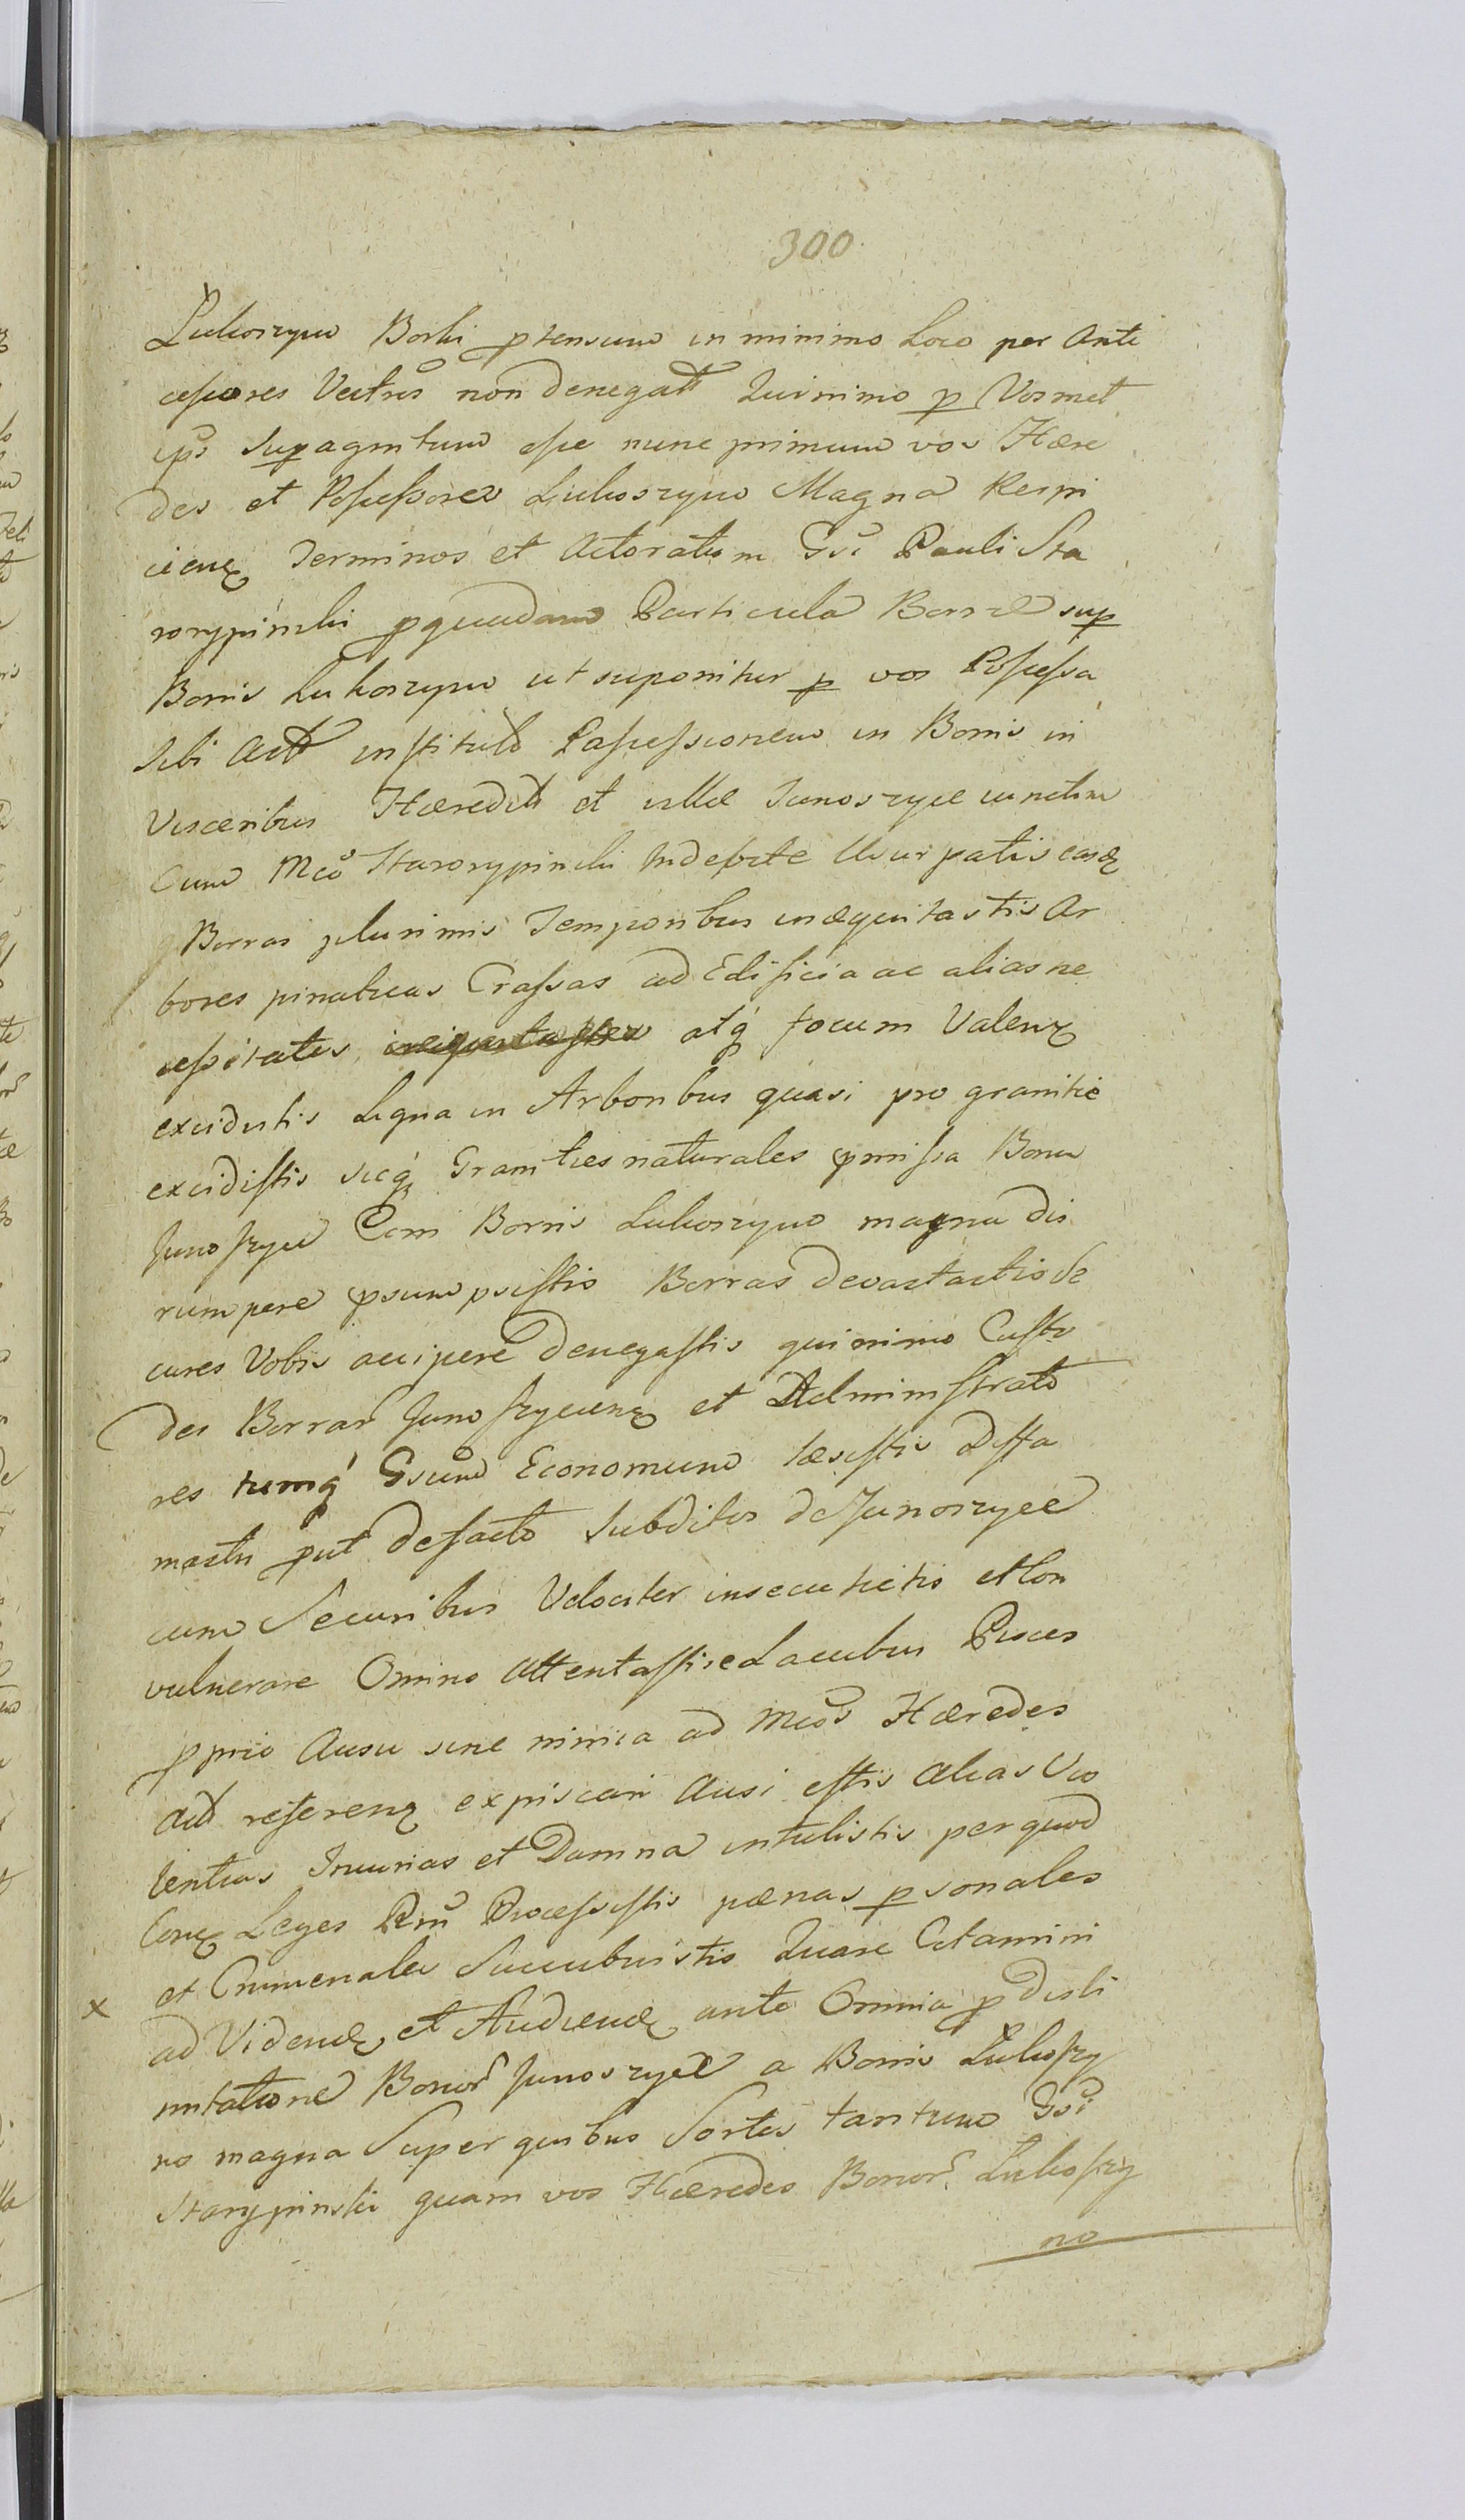 300
Lukoszyno Borki ptensum in minimo Loco per Ante
cessores Vestros non denegatt Quinimo p Vosmet
ips Supagnitum esse nunc primum vos Hære
des et Possessores Lukoszyno Magna Respi
cienq Terminos et Actoratum Gsi Pauli Sta
rorypinski pquadam Particula Borræ sup
Bonis Lukoszyno ut suponitur p vos Possessa
sibi Actt institutt Possessionem in Bonis in
Visceribus Hæredittt et villæ Junoszyce iunctim
Cum Mco Starorypinski Indebite Usurpatis easq
Borras plurimis Temporibus inæquitastis Ar
bores pinaticas Crassas ad Edificia ac alias ne
cessitates atq focum Valenq
excidistis Ligna in Arboribus quasi pro granitie
excidistis sicq Granities naturales pmissa Bona
Junoszyce Com Bonis Lukoszyno magna dis
rumpere psumpsistis Borras devastastis Se
cures Vobis accipere denegastis quinimo Custo
des Borrar Junoszycenq et Administrato
res tumq Gsum Economum læsistis Diffa
mastis put defacto Subditos de Junoszyce
cum Securibus Velociter insecutietis et Con
vulnerare Omino Attentastis e Lacubus Pisces
pprio Ausu sine nimia ad Mcos Hæredes
Actt referenq expiscari Ausi estis alias Vio
lentias Iniurias et Damna intulistis per quod
Conq Leges Rni Processistis pænas psonales
et Criminales Succubuistis Quare Citamini
x ad Videnq et Audienq ante Omnia p disli
mitatione Bonor Junoszyce a Bonis Lukoszy
no magna Super quibus Sortes tantum Gsi
Starypinski quam vos Hæredes Bonor Lukoszy
no